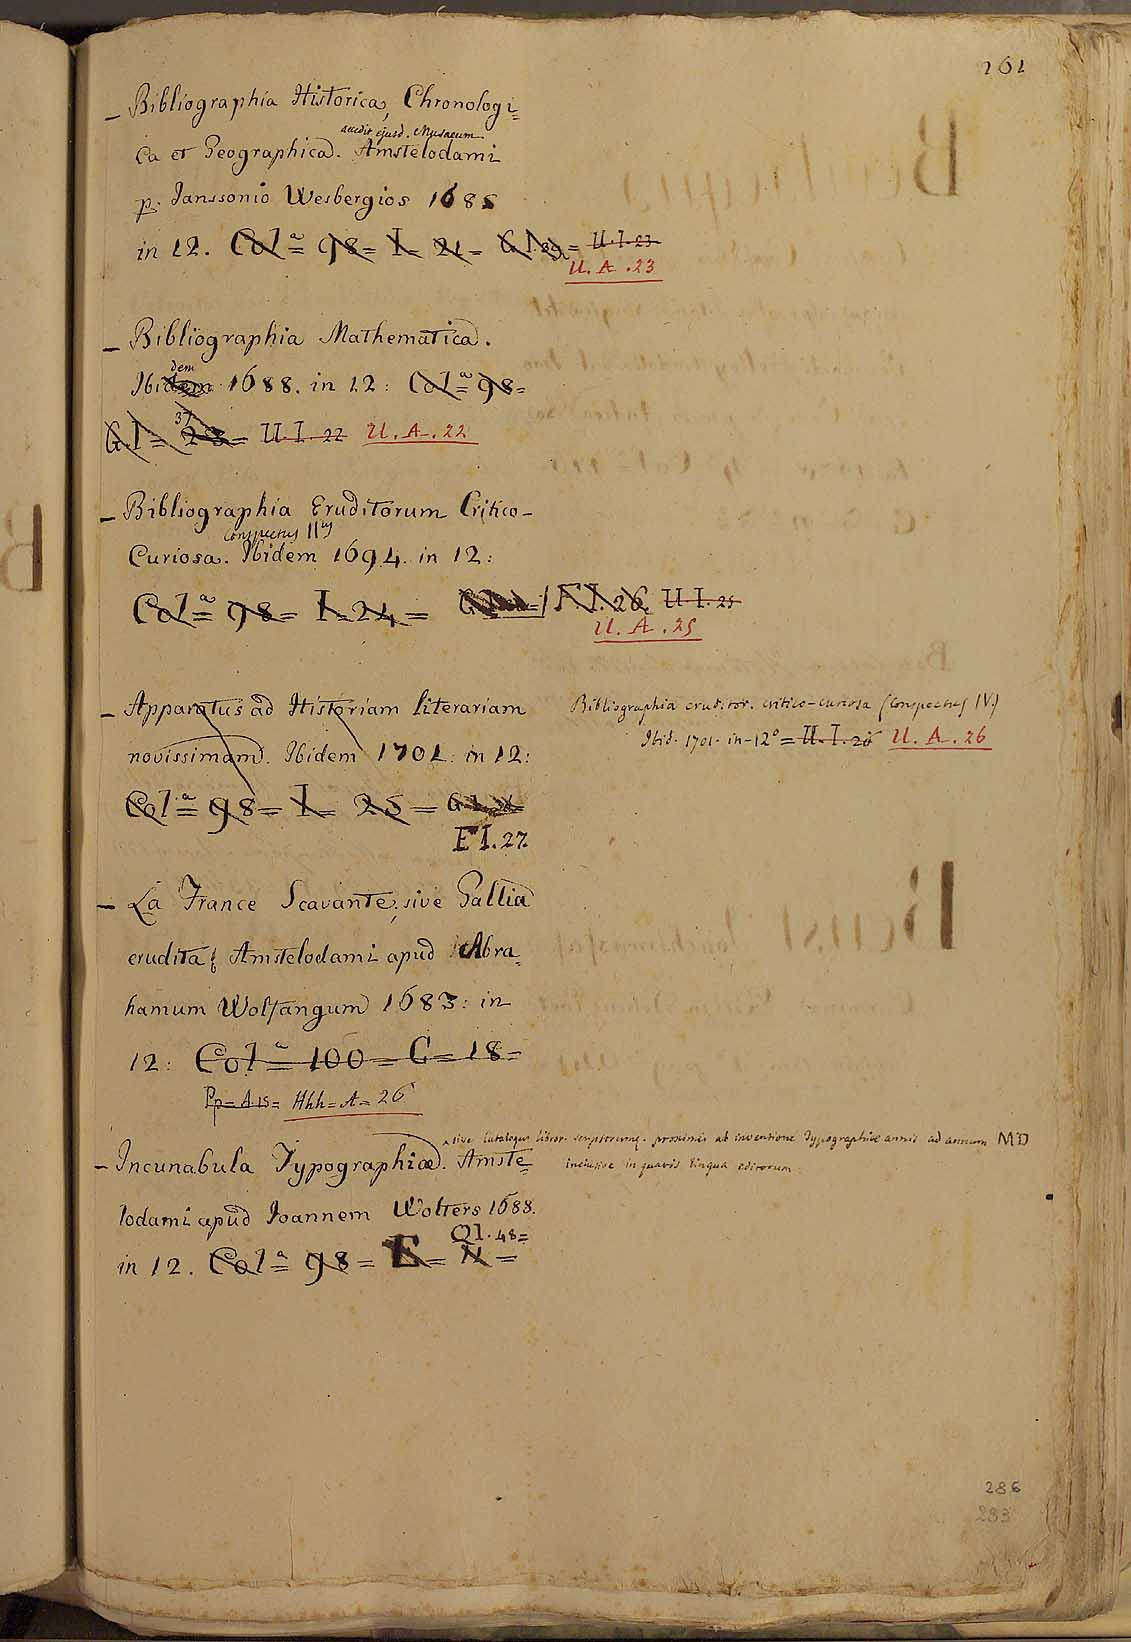 261
– Bibliographia Historica, Chronologi=
accedit ejusd. Musaeum.
ca et Geographica. Amstelodami
p. Janssonio Wesbergios 1685
in 12. Colª= 98= I= 21= G.I. = U.I.23
U.A.23
– Bibliographia Mathematica.
dem
Ibidem 1688. in 12: Colª= 98=
37
G.I= 28= U.I.22 U.A.22
– Bibliographia Eruditorum Critico-
Conspectus IIus
Curiosa. Ibidem 1694. in 12:
Colª= 98= I=24= F I.26 U.I.25
U.A.25
– Apparatus ad Historiam literariam
novissimam. Ibidem 1701: in 12:
Colª= 98= I= 25= G.I.
F I.27
Bibliographia eruditor. critico-curiosa (Conspectus IV.)
Ibid. 1701. in-12º= U.I.26 U.A.26
– La France Scavante, sive Gallia
erudita; Amstelodami apud Abra=
hamum Wolfangum 1683: in
12: Colª= 100= C= 18=
Pp= A.15= Hhh= A= 26
sive Catalogus libror. scriptorumq. proximis ab inventione Typographiae annis ad annum MD
inclusive in quavis lingua editorum.
– Incunabula Typographiae. Amste=
lodami apud Ioannem Wolters 1688.
QI.48=
in 12. Colª= 98= E= N=
286
283